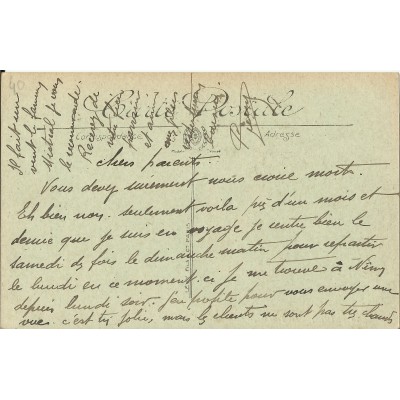 Carte Postale
Correspondance
Adresse
chers parents.
Vous devez surement nous croire morts.
Eh bien non. seulement voila près d'un mois et
demie que je suis en voyage je rentre bien le
samedi des fois le dimanche matin pour repartir
le lundi en ce moment ci je me trouve à
depuis lundi soir. j'en profite pour vous envoyer une
vue. c'est très jolie, mais les clients ne sont pas très chauds
Il fait un
vent le fameux
Mistral je vous
le recommande.
Recevez de